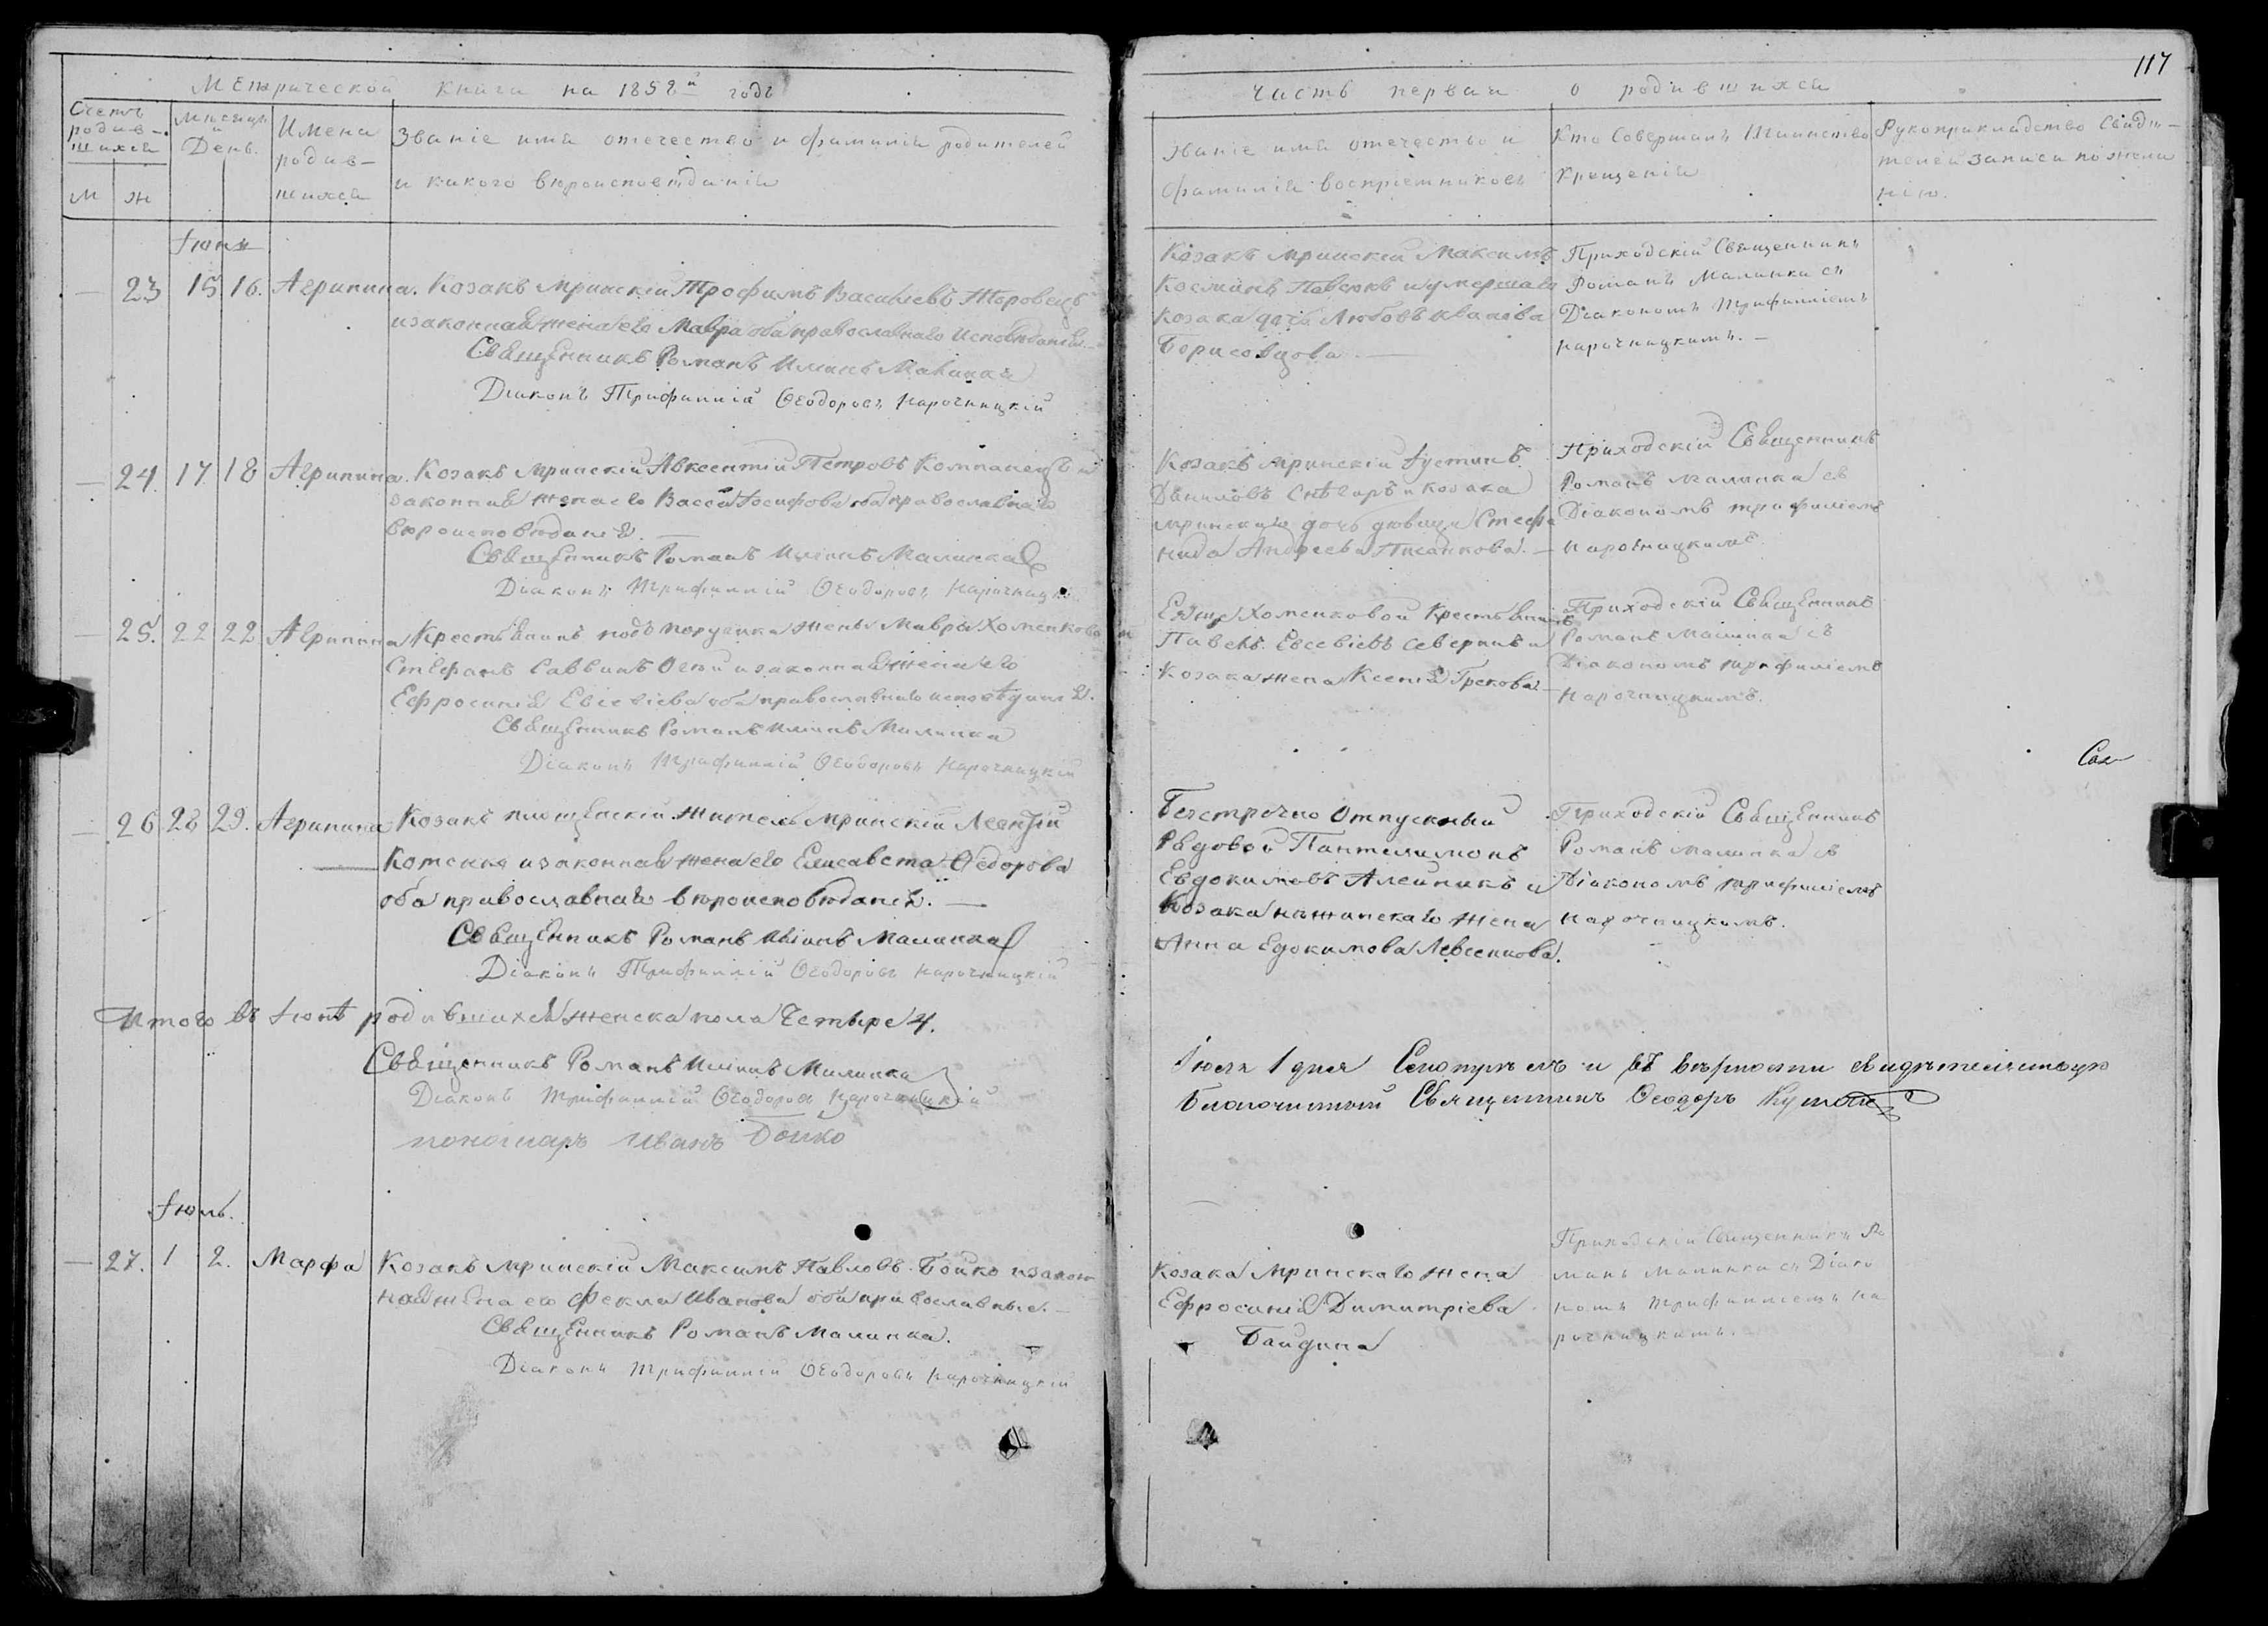 117
Метрической книги на 1852й годъ
Счетъ родив-шихся
м ж
Мѣсяцъ и День.
Имена родив-шихся
Званіе имя отечество и фамилія родителей
и какого вѣроисповѣданія
Часть первая о родившихся
Званіе имя отечество и
фамилія воспріемниковъ
Кто совершалъ таинство
крещенія
Рукоприкладство свидѣ-
телей записи по жела
нію.
Іюнь
— 23 15 16. Агрипина. Козакъ мринскій Трофимъ Васильевъ Торовецъ
и законная жена его Мавра оба православнаго исповѣданія.
Священникъ Романъ Малинка
Діаконъ Трифиллій Ѳеодоровъ Нарочницкій
Козакъ мринскій Максимъ
Косминъ Павлюкъ и умершаго
козака дочь Любовь Иванова
Борисовцова —
Приходскій Священникъ
Романъ Малинка съ
Діакономъ Трифилліемъ
нарочницкимъ. —
— 24. 17 18 Агрипина. Козакъ мринскій Авксентій Петровъ Компанецъ и
законная жена его Васса Іосифова оба православнаго
вѣроисповѣданія. —
Священникъ Романъ Малинка
Діаконъ Трифиллій Ѳеодоровъ Нарочницкі
Козакъ мринскій Іустинъ
Даниловъ Снѣгаръ и козака
мринскаго дочь дѣвица Стефа
нида Андреева Писанкова. —
Приходскій Священникъ
Романъ Малинка съ
Діакономъ трифиліемъ
нарочницкимъ
— 25. 22 22 Агрипина Крестьянинъ подъпоручика жены Мавры Хоменково
Стефанъ Саввинъ и законная жена его
Ефросинія Евсевіева оба православнаго исповѣданія.
Священникъ Романъ Малинка
Діаконъ Трифиллій Ѳеодоровъ Нарочницкій
Еяже Хоменковой Крестьянинъ
Павелъ Евсевіевъ Северинъ и
козака жена Ксенія Грекова —
Приходскій Священникъ
Романъ Малинка съ
Діакономъ трифиліемъ
нарочницкимъ.
— 26 28 29. Агрипина Козакъ житель мринскій Леонтій
Котенко и законная жена его Елисавета Ѳедорова
оба православнаго вѣроисповѣданія. —
Священникъ Романъ Малинка
Діаконъ Трифиллій Ѳеодоровъ нарочницкій
Безсрочно отпускный
Рядовой Пантелимонъ
Евдокимовъ Алейникъ и
козака нѣжинскаго жена
Анна Едокимова Левсенкова.
Приходскій Священникъ
Романъ малинка съ
Діакономъ трифиліемъ
нарочницкимъ.
Итого въ Іюнѣ родившихся женска пола Четыре 4.
Священникъ Романъ Малинка
Діаконъ Трифиллій Ѳеодоровъ Нарочницкій
пономарь Иванъ Бойко
Іюля 1 дня Смотрѣлъ и въ вѣрности свидѣтельствую
Благочинный Священникъ Ѳеодоръ
Іюль.
— 27. 1 2. Марфа Козакъ мринскій Максимъ Павловъ Бойко и закон
ная жена его Фекла Иванова оба православные. —
Священникъ Романъ Малинка.
Діаконъ Трифиллій Ѳеодоровъ Нарочницкій
Козака Мринскаго жена
Ефросинія Димитріева
Байдина
Приходскій Священникъ Ро
манъ Малинка съ Діако
номъ Трифилліемъ На
рочницкимъ.